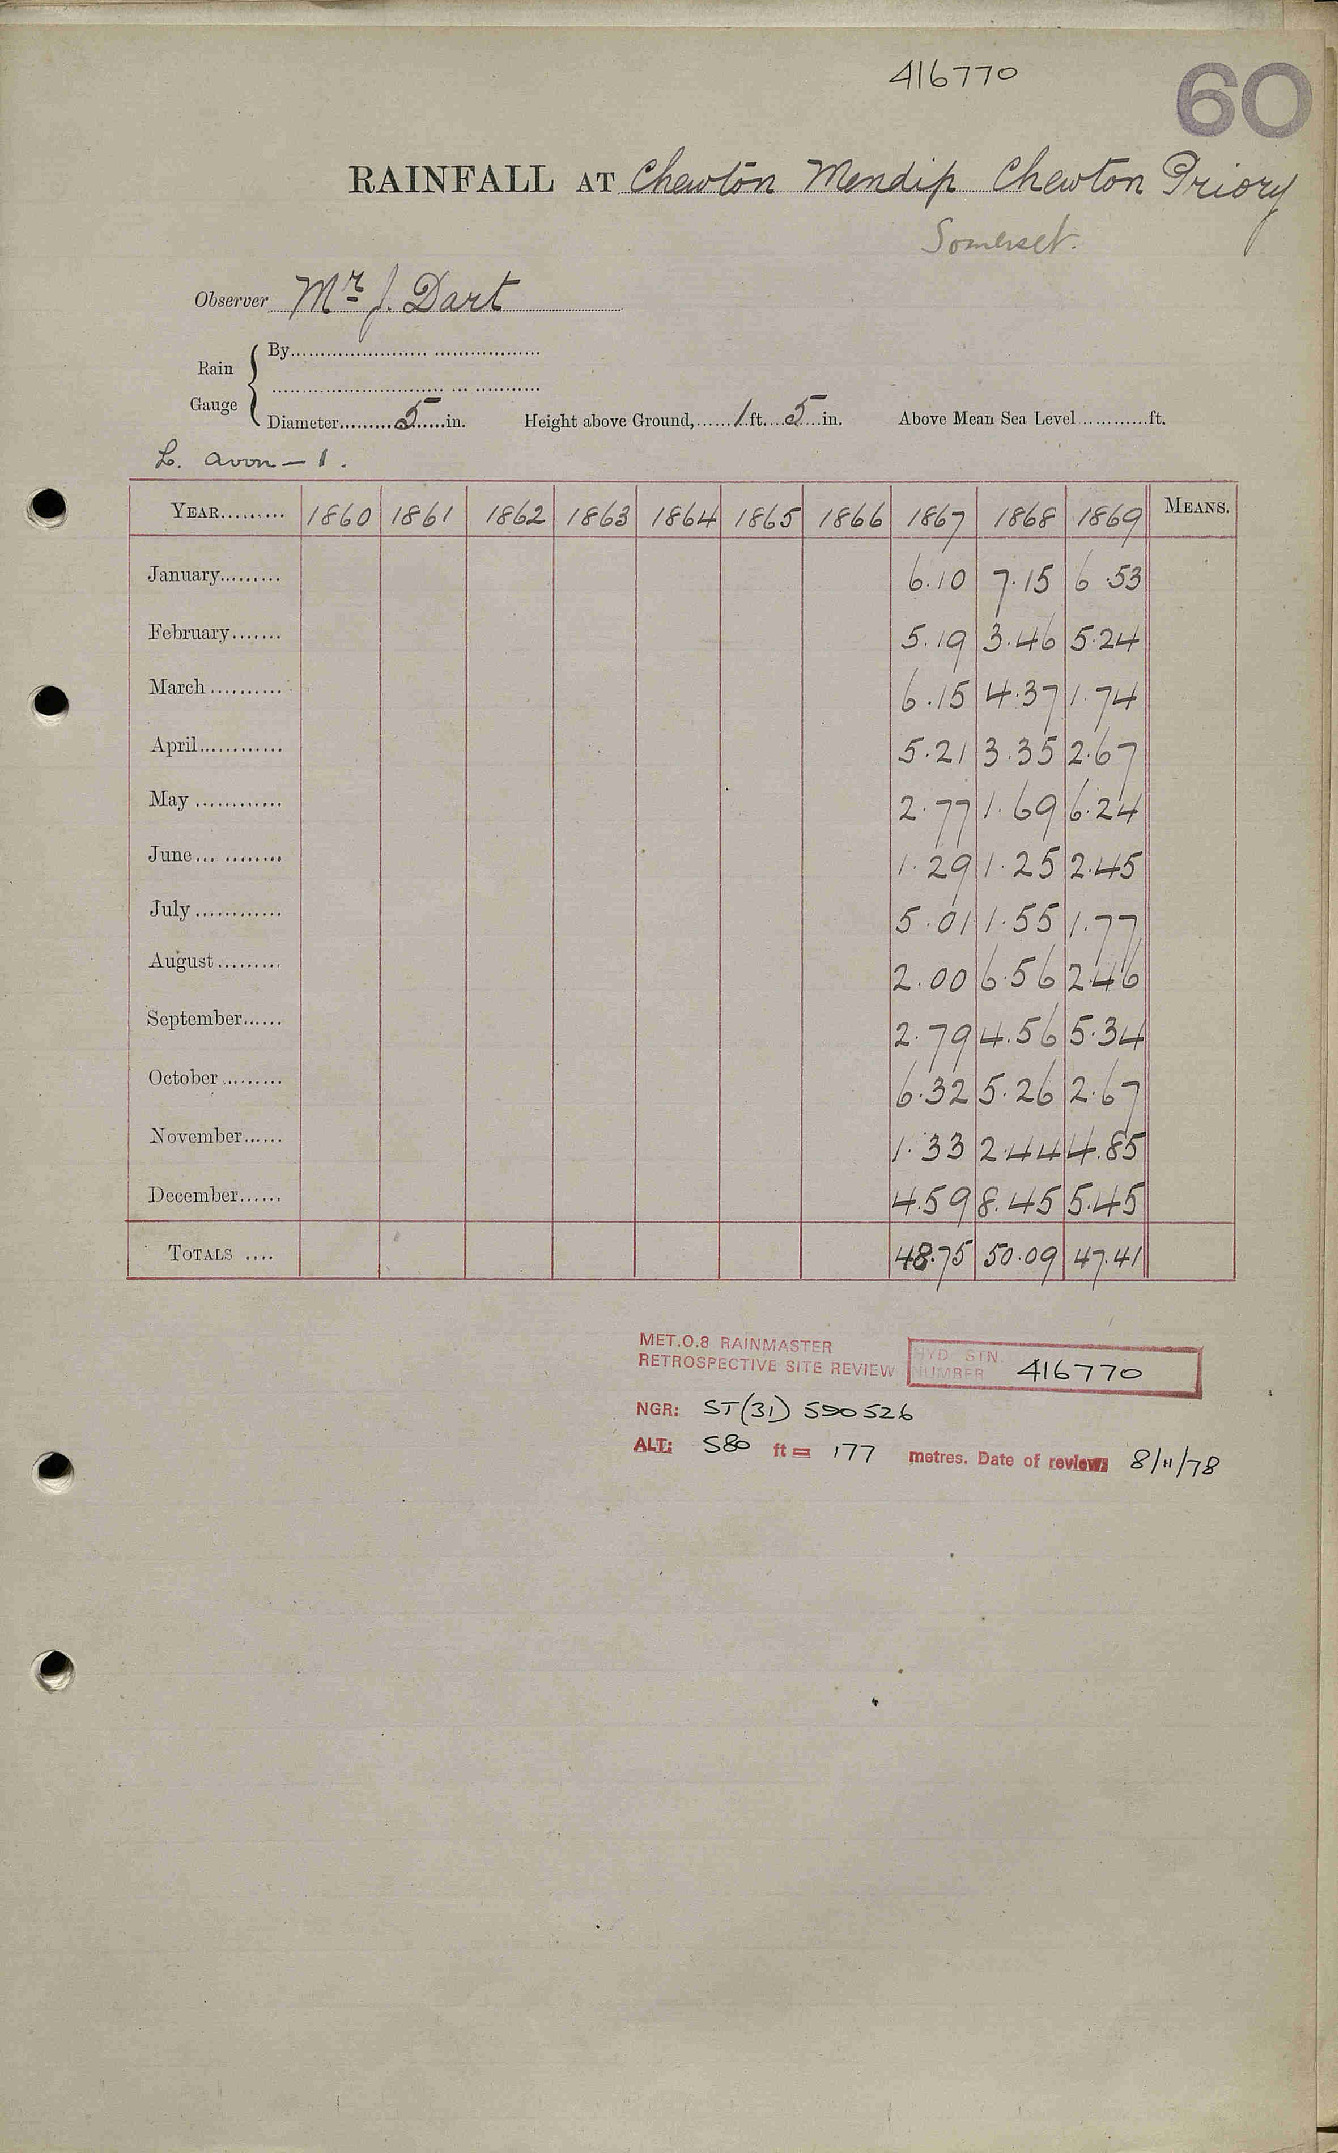 416770
60
RAINFALL AT Chewton Mendip Chewton Priory
Somerset.
Observer Mr J. Dart
Rain Gauge
By
Diameter 5 in. Height above Ground, 1 ft. 5 in. Above Mean Sea Level ft.
L. Avon – 1.
YEAR 1860 1861 1862 1863 1864 1865 1866 1867 1868 1869 MEANS.
January 6.10 7.15 6.53
February 5.19 3.46 5.24
March 6.15 4.37 1.74
April 5.21 3.35 2.67
May 2.77 1.69 6.24
June 1.29 1.25 2.45
July 5.01 1.55 1.77
August 2.00 6.56 2.46
September 2.79 4.56 5.34
October 6.32 5.26 2.67
November 1.33 2.44 4.85
December 4.59 8.45 5.45
TOTALS 48.75 50.09 47.41
MET.O.8 RAINMASTER
RETROSPECTIVE SITE REVIEW
HYD. STN. NUMBER 416770
NGR: ST(31) 590526
ALT: 580 ft = 177 metres. Date of review: 8/11/78